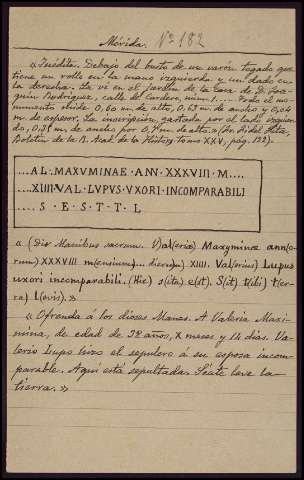 Mérida. Nº 182
« Inédita. Debajo del busto de un varón togado que
tiene un rollo en la mano izquierda y un dado en
la derecha. La ví en el jardín de la Casa de D. Joa-
quín Rodríguez, calle del Cordero, núm. 1.... Todo el mo-
numento mide 0,60 m. de alto, 0,63 m. de ancho y 0,04
m. de espesor. La inscripción, gastada por el lado izquier-
do, de ancho por de alto. » (Sr. Fidel Fita,
Boletín de la R. Acad. de la Historia, tomo XXV, pág. 132).
...AL. MAXVMINAE·ANN·XXXVIII·M....
...XIIII·VAL·LVPVS·VXORI INCOMPARABILI
....S · E · S · T · T · L
« (Dis Manibus sacrum. V)al(eriae) Maxyminae ann(o-
rum) XXXVIII m(ensium)... dierum) XIIII. Val(erius) Lupus
uxori incomparabili. (Hic) s(ita) e(st). S(it) t(ibi) t(er-
ra) l(evis). »
« Ofrenda á los dioses Manes. A Valeria Maxi-
mina, de edad de 38 años, X meses y 14 días. Va-
lerio Lupo hizo el sepulcro á su esposa incom-
parable. Aquí está sepultada. Séate leve la
tierra. »